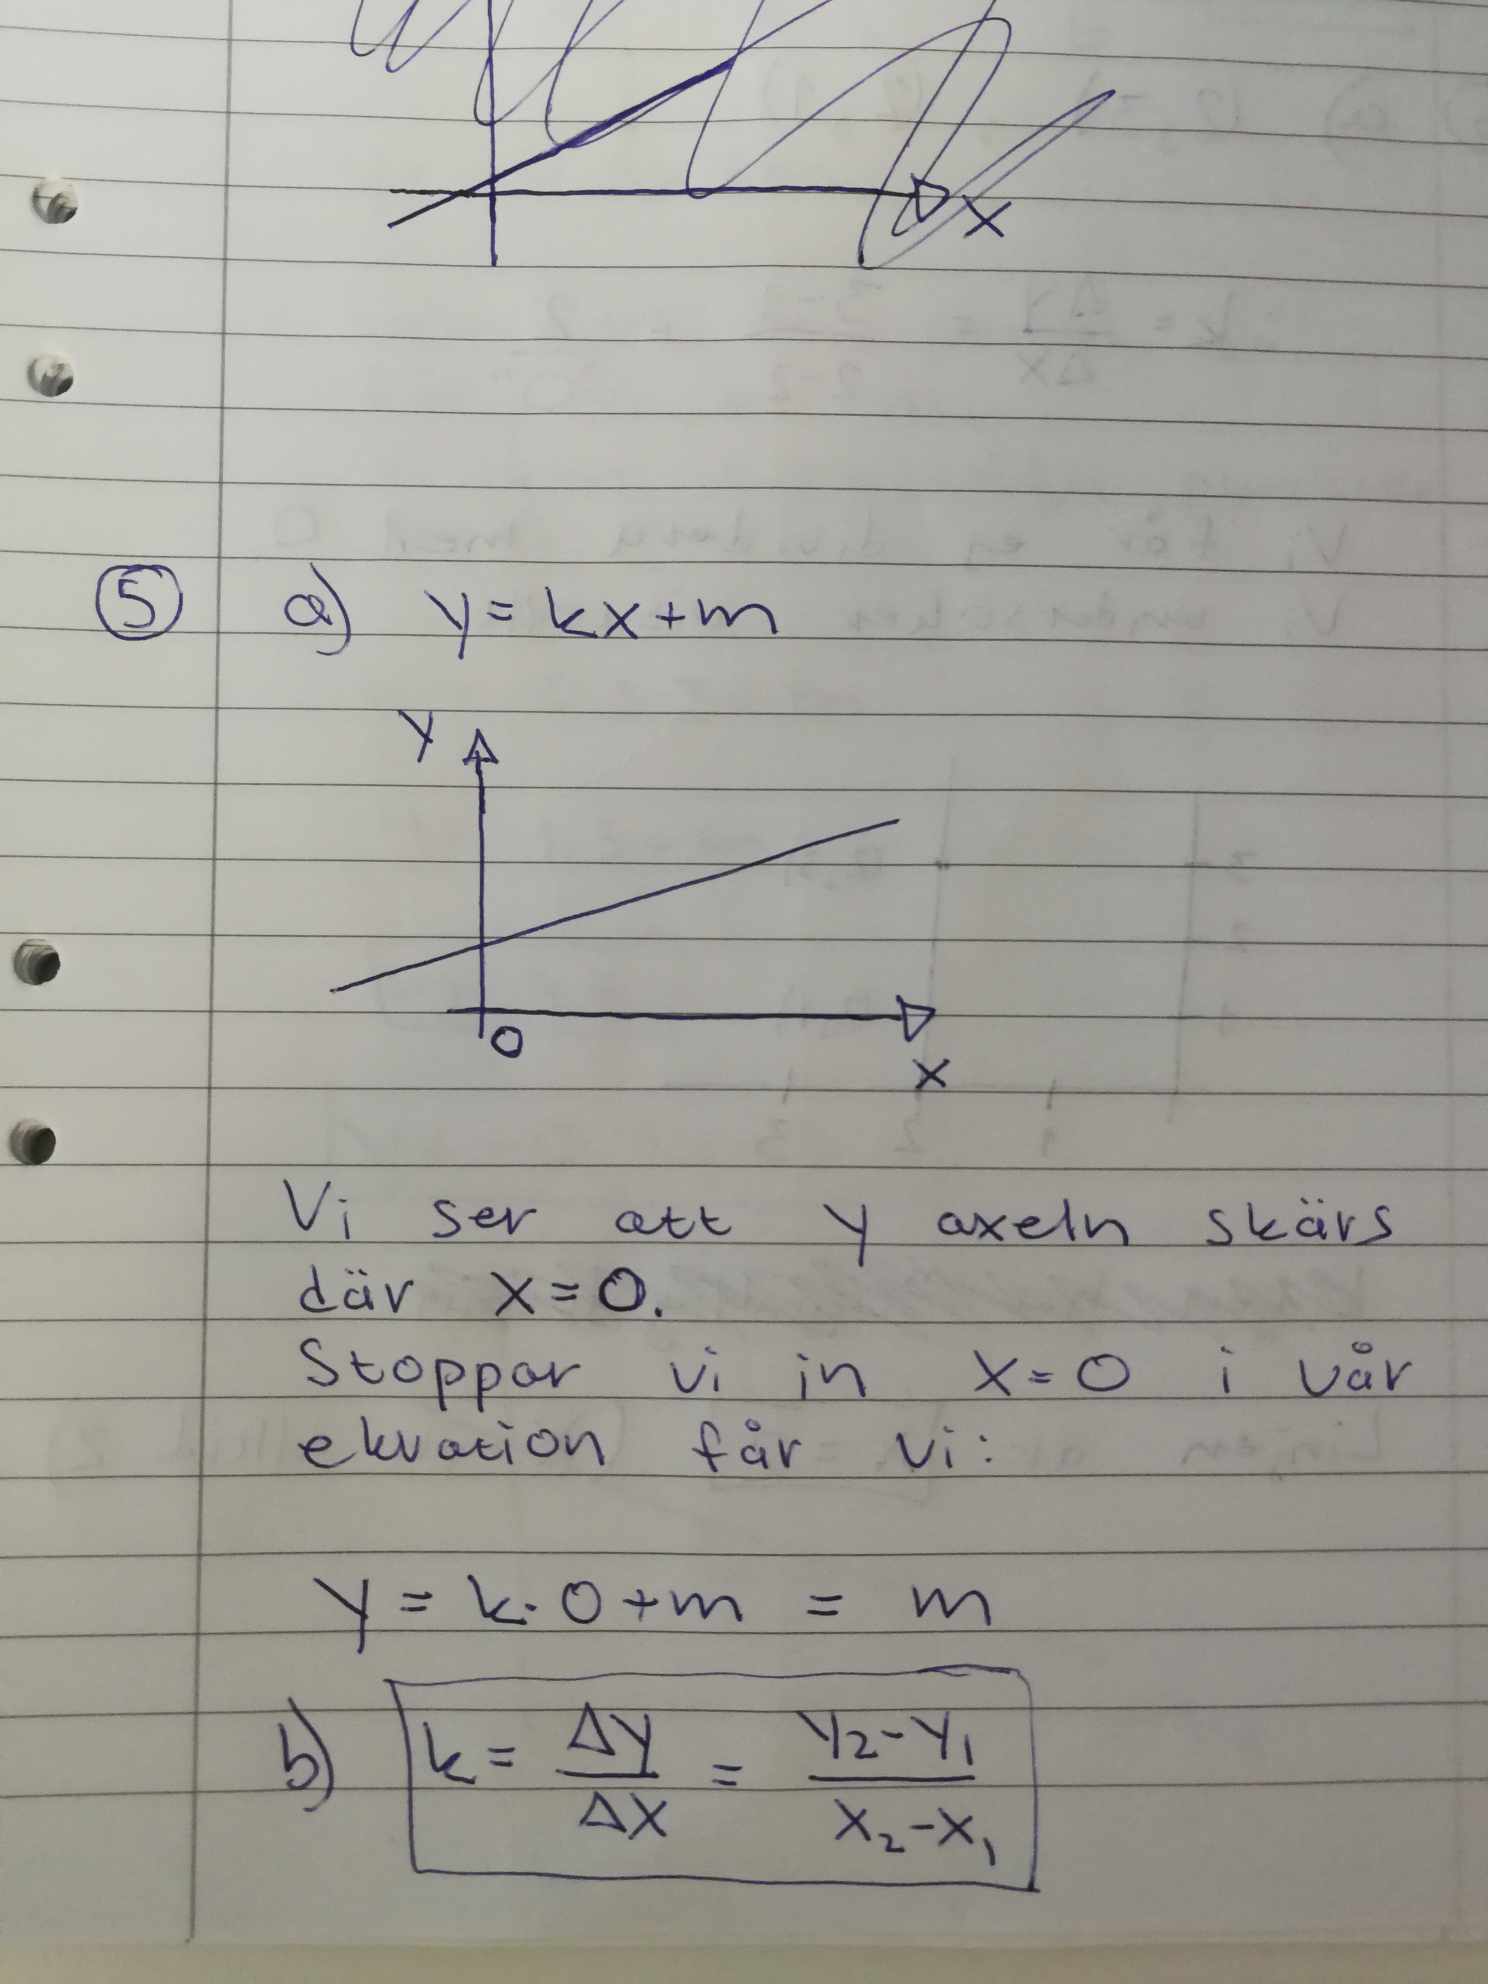 x
⑤ a) y = kx+m
y
0
x
Vi ser att y axeln skärs
där x=0.
Stoppar vi in x=0 i vår
ekvation får vi:
y = k·0+m = m
b) k = Δy/Δx = (y₂-y₁)/(x₂-x₁)